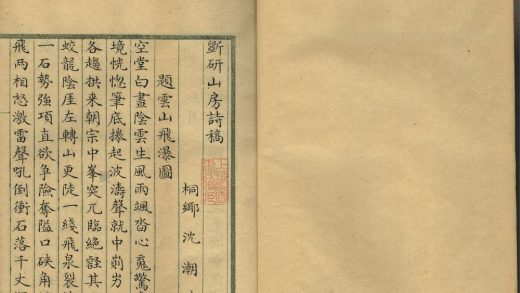 斲研山房詩稿
桐鄉沈潮
題雲山飛瀑圖
空堂白晝陰雲生風雨颯沓心魂驚
境恍惚筆底捲起波濤聲就中崱屴
各趨拱来朝宗中峯突兀臨絕
蛟龍陰崖左轉山更陡一綫飛泉裂
一石勢強項直欲爭險奪隘口硤角
飛兩相怒激雷聲吼倒衝石落千丈